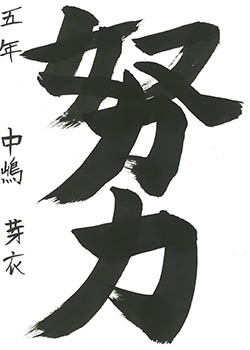 努力
五年 中嶋 芽衣